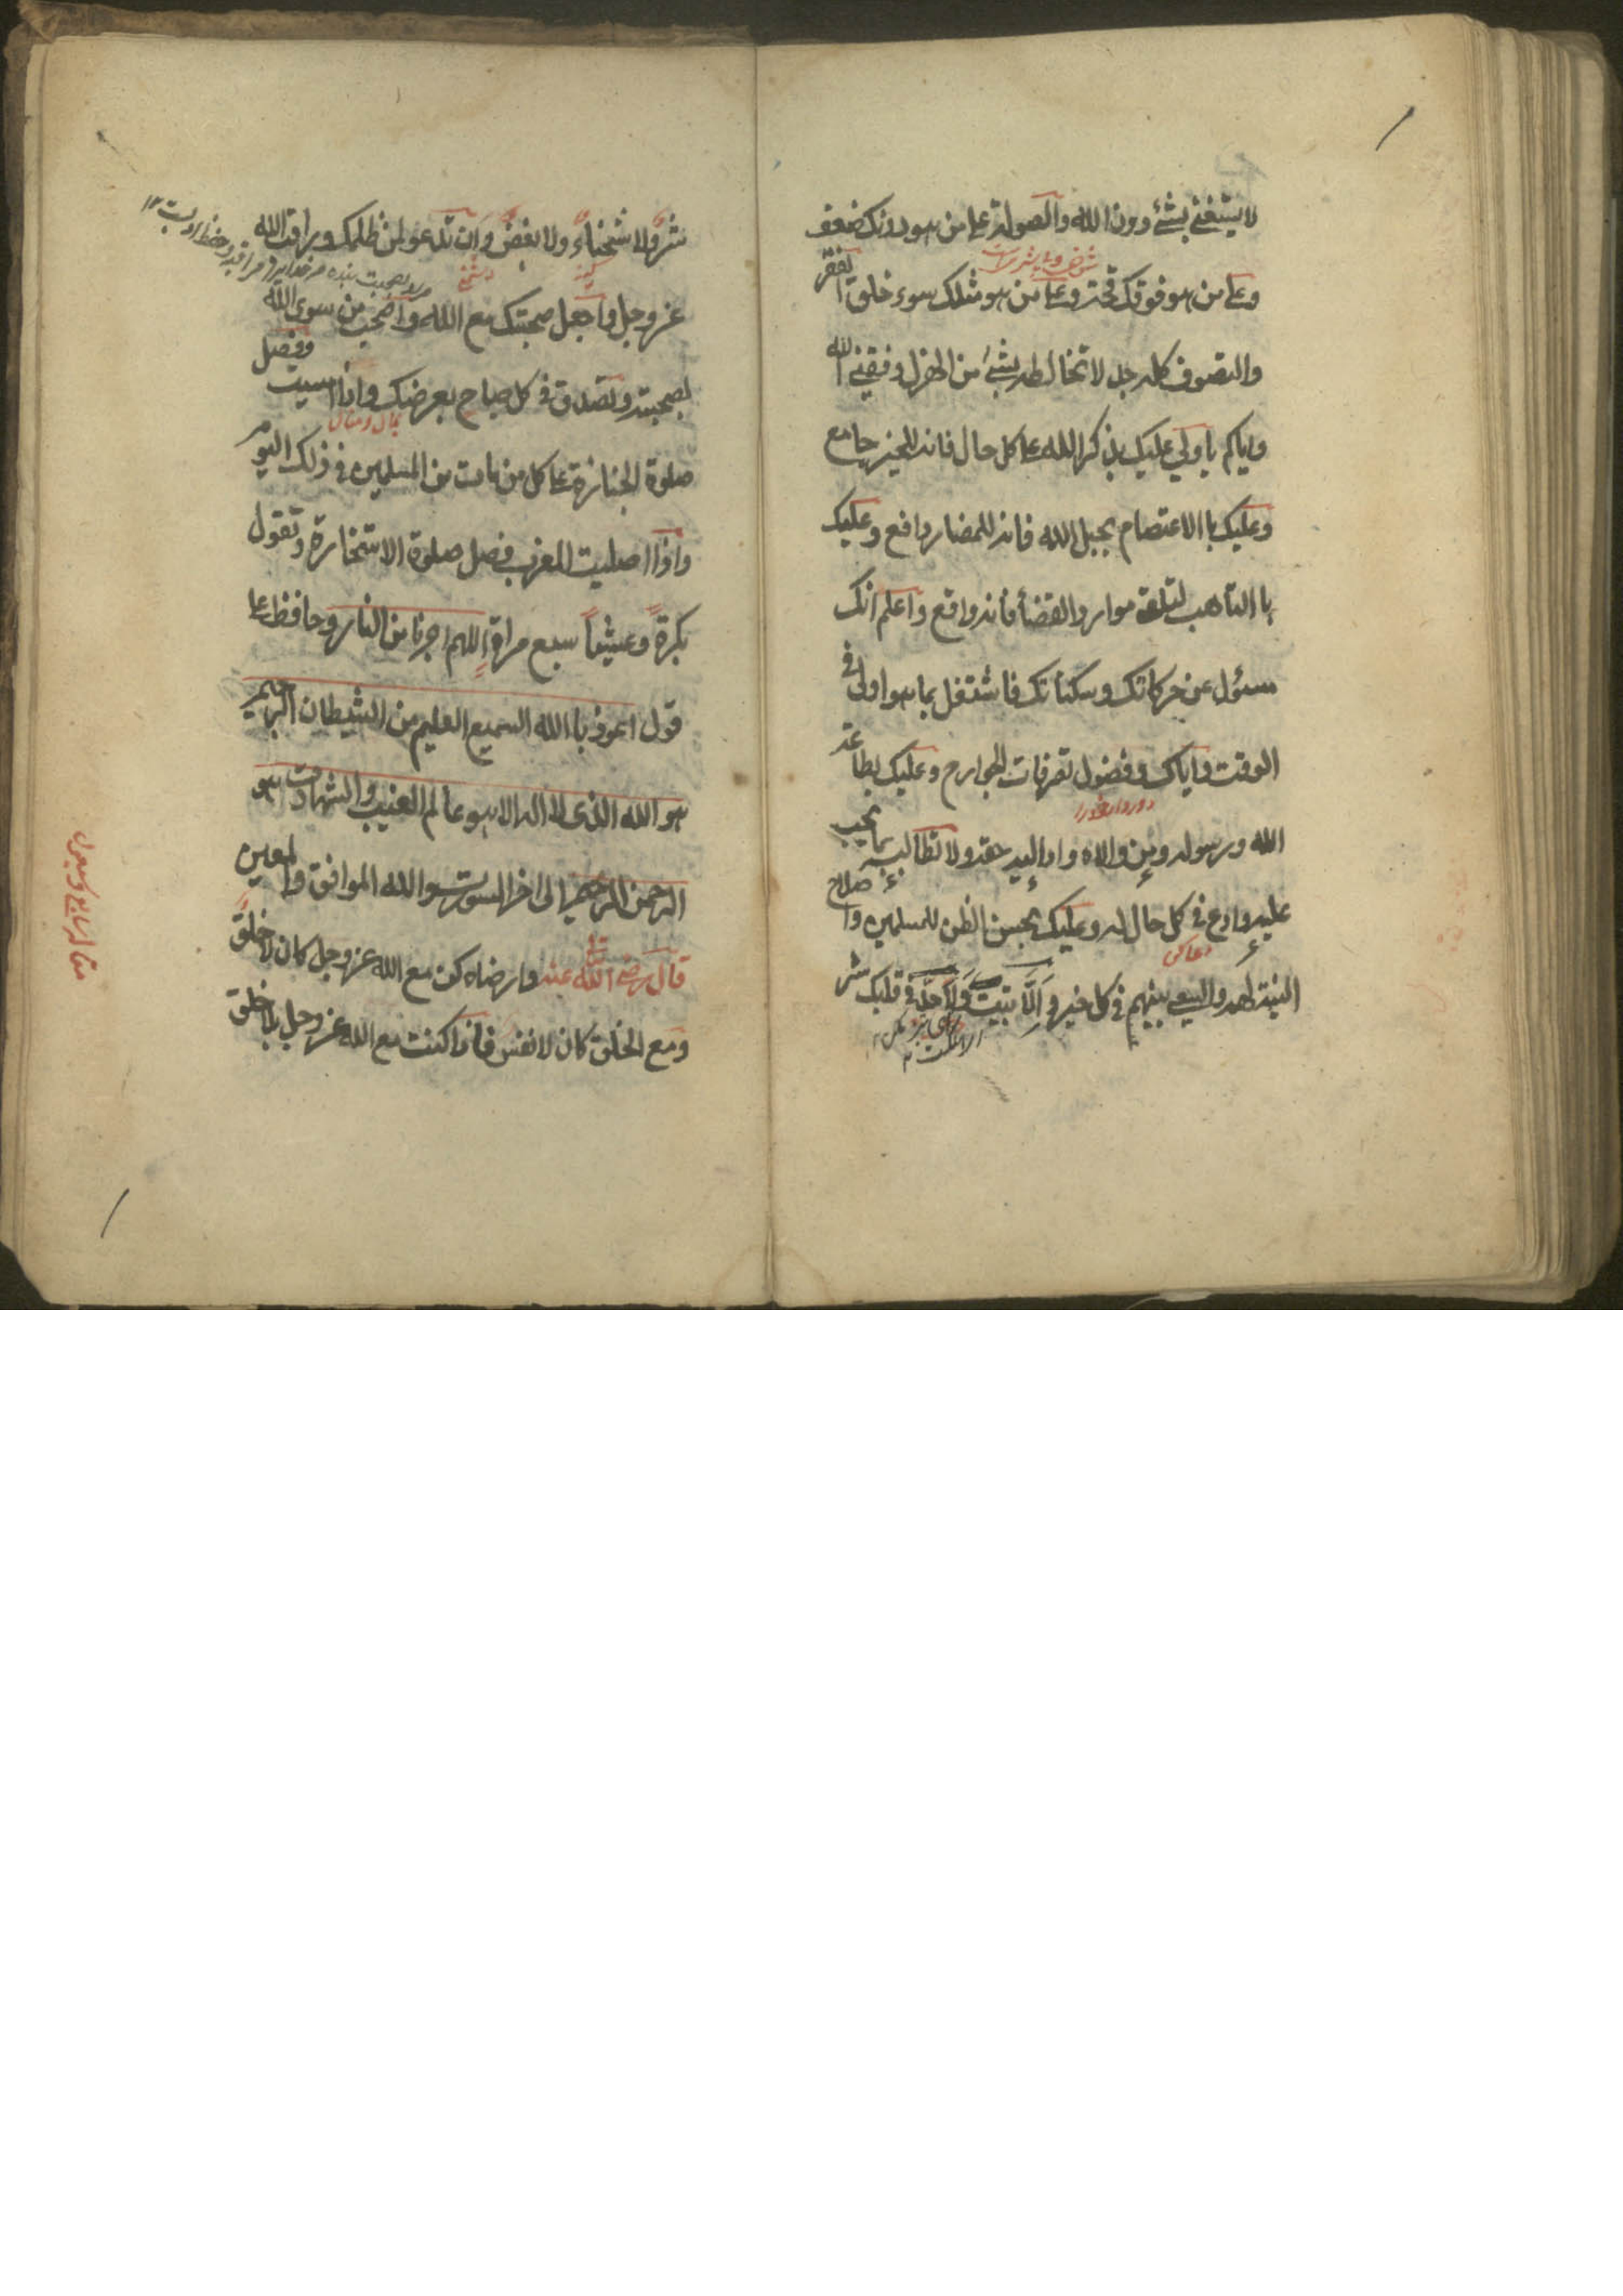 لا يستغنى بشئ دون الله والصولة على من هو دونك ضعف
وعلى من هو فوقك قحة وعلى من هو مثلك سوء خلق الفقر
والتصوف كله جد لا تخالطه بشئ من الهزل وفقنى الله
واياكم يا ولي عليك بذكر الله على كل حال فانه للخير جامع
وعليك باالاعتصام بحبل الله فانه للمضار دافع وعليك
باالتأهب لتلقى موارد القضأ فانه واقع واعلم انك
مسئول عن حركاتك وسكناتك فاشتغل بما هو اولى فى
الوقت واياك وفضول تصرفات الجوارح وعليك بطاعة
الله ورسوله ومن والاه واد اليه حقه ولا تطالبه بما يجب
عليه وادع فى كل حال له وعليك بحسن الظن للمسلمين واصلاح
دعا كن
النية لهم والسعى بينهم فى كل خير و الا تبيت ولاحد فى قلبك شر
شر ولا شحناء ولا بغض وان تدعو لمن ظلمك وراقب الله
كينه
دشمنى
عز وجل واجعل صحبتك مع الله واصحب من سوى الله
بصحبته وتصدق فى كل صباح بعرضك واذا امسيت فصل
صلوة الجنازة على كل من مات من المسلمين فى ذلك اليوم
واذا اصليت المغرب فصل صلوة الاستخارة وتقول
بكرة وعشيا سبع مراة اللهم اجرنا من النار وحافظ على
قول اعوذ باالله السميع العليم من الشيطان الرجيم
هو الله الذى لا اله الا هو عالم الغيب والشهادت هو
الرحمن الرحيم الى اخر السورت والله الموافق والمعين
قال رضى الله تعالى عنه وارضاه كن مع الله عز وجل كان لا خلق
ومع الخلق كان لا نفس فاذا كنت مع الله عز وجل بلا خلق